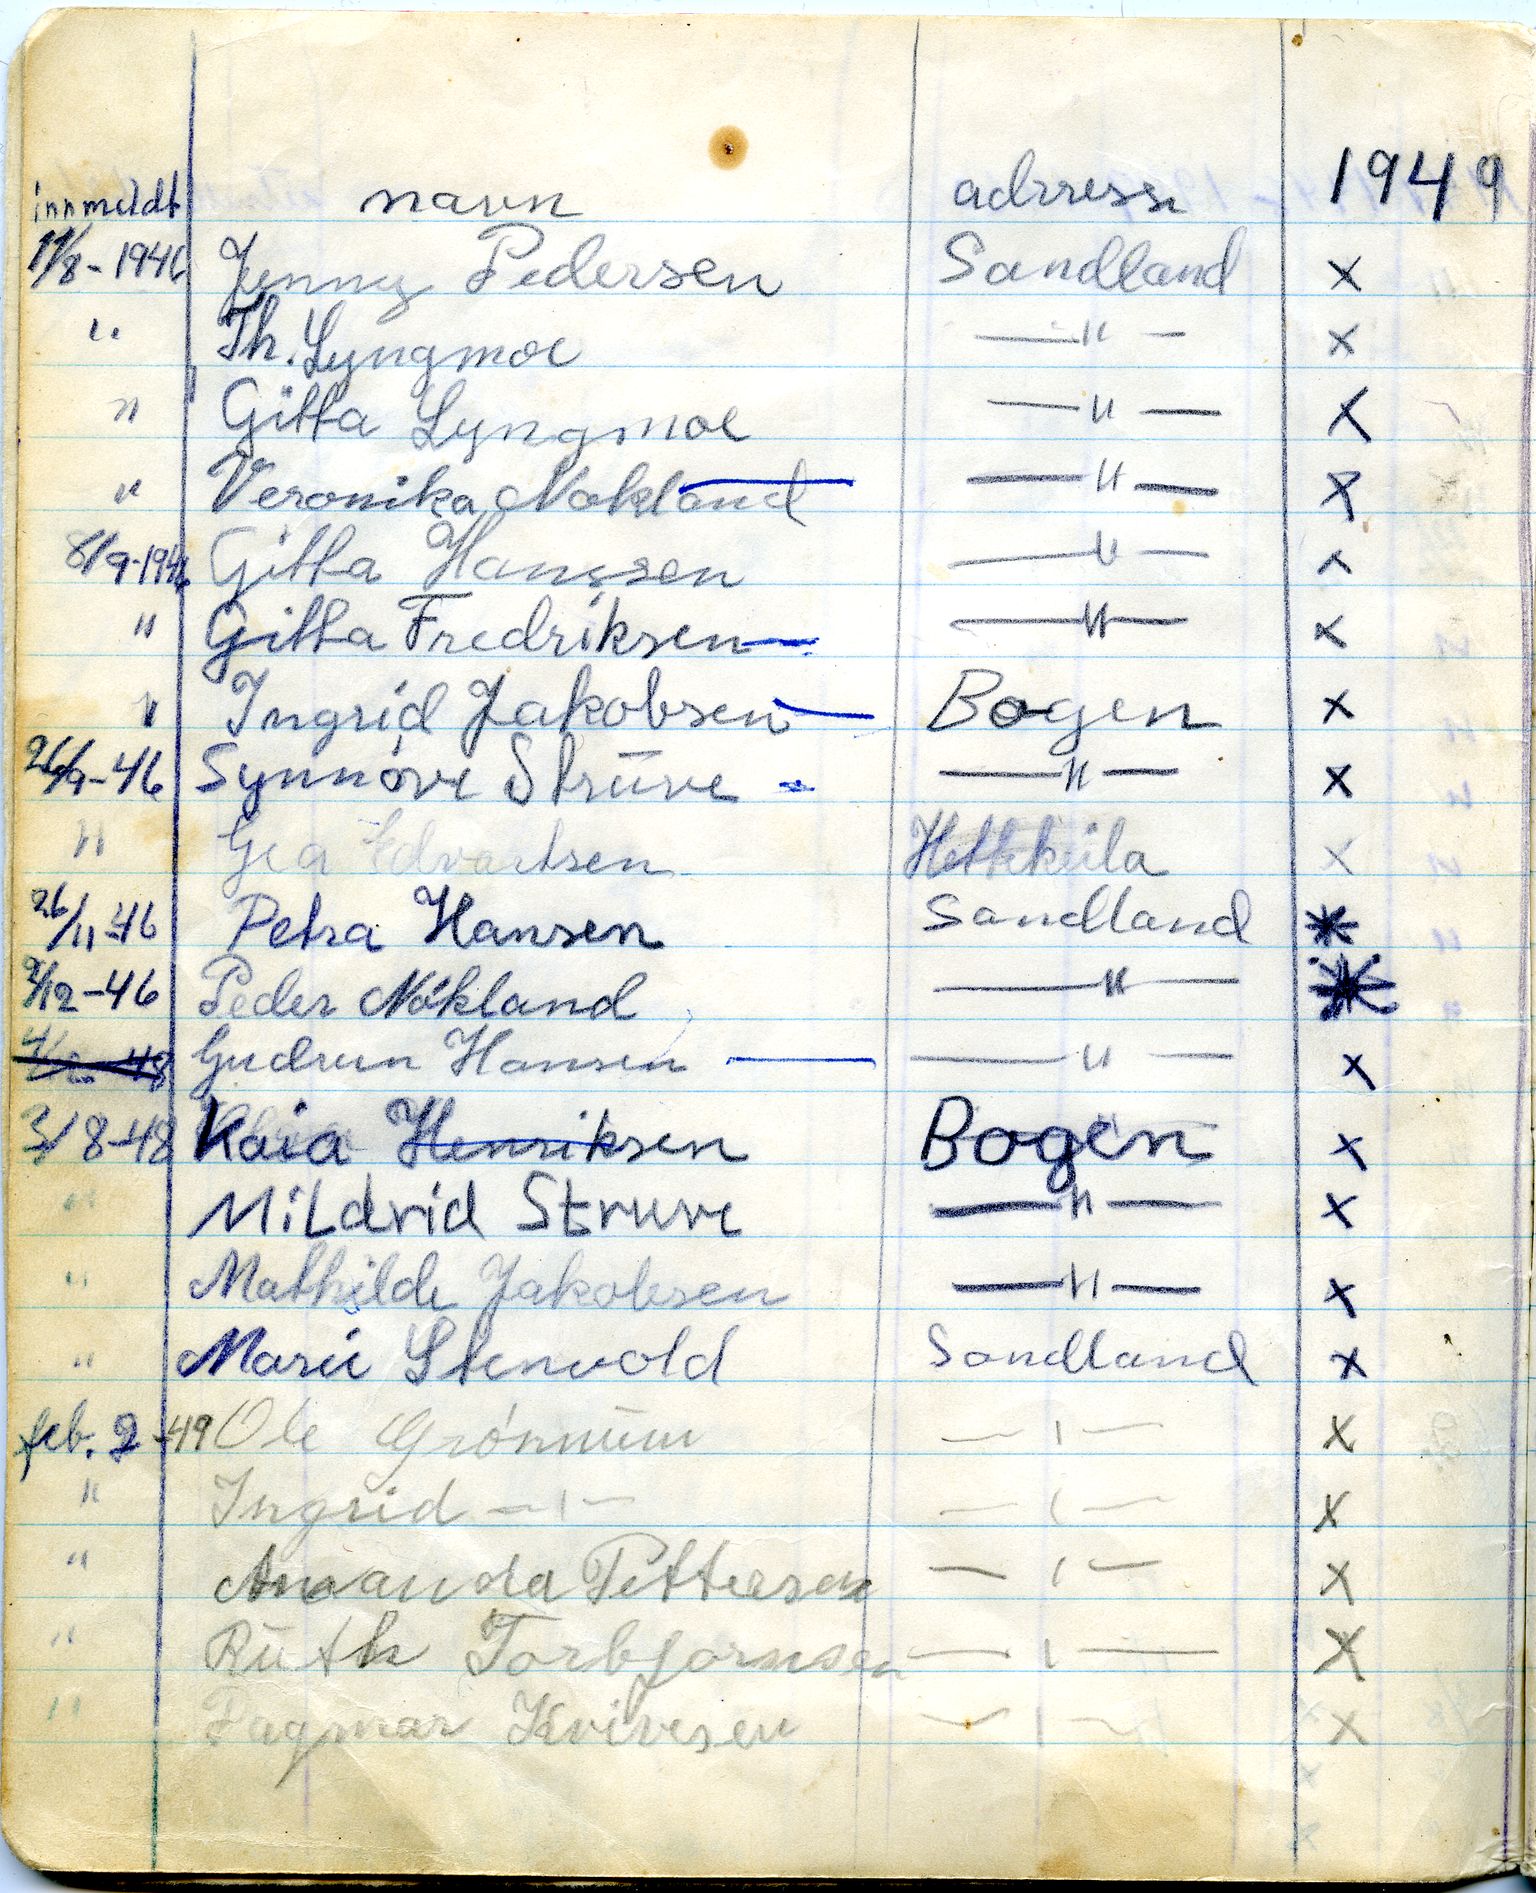 innmeldt navn adrress 1949
11/8-1946 Jenny Pedersen Sandland x
" Th. Lyngmoe —"— x
" Gitta Lyngmoe —"— x
" Veronika Nokland —"— x
8/9-1946 Gitta Hanssen —"— x
" Gitta Fredriksen —"— x
" Ingrid Jakobsen Bogen x
26/9-46 Synnóve Strüve —"— x
" Gea Edvartsen x
26/11-46 Petra Hansen Sandland x
2/12-46 Peder Nókland —"— x
Gudrun Hansen —"— x
3/8-48 Kaia Henriksen Bogen x
" Mildrid Struve —"— x
" Mathilde Jakobsen —"— x
" Marie Stenvold Sandland x
feb. 2-49 Ole Grónnüm —ı— x
" Ingrid —ı— —ı— x
" Amanda Pettersen —ı— x
" Rüth Torbjornsen —ı— x
" Dagmar —ı— x